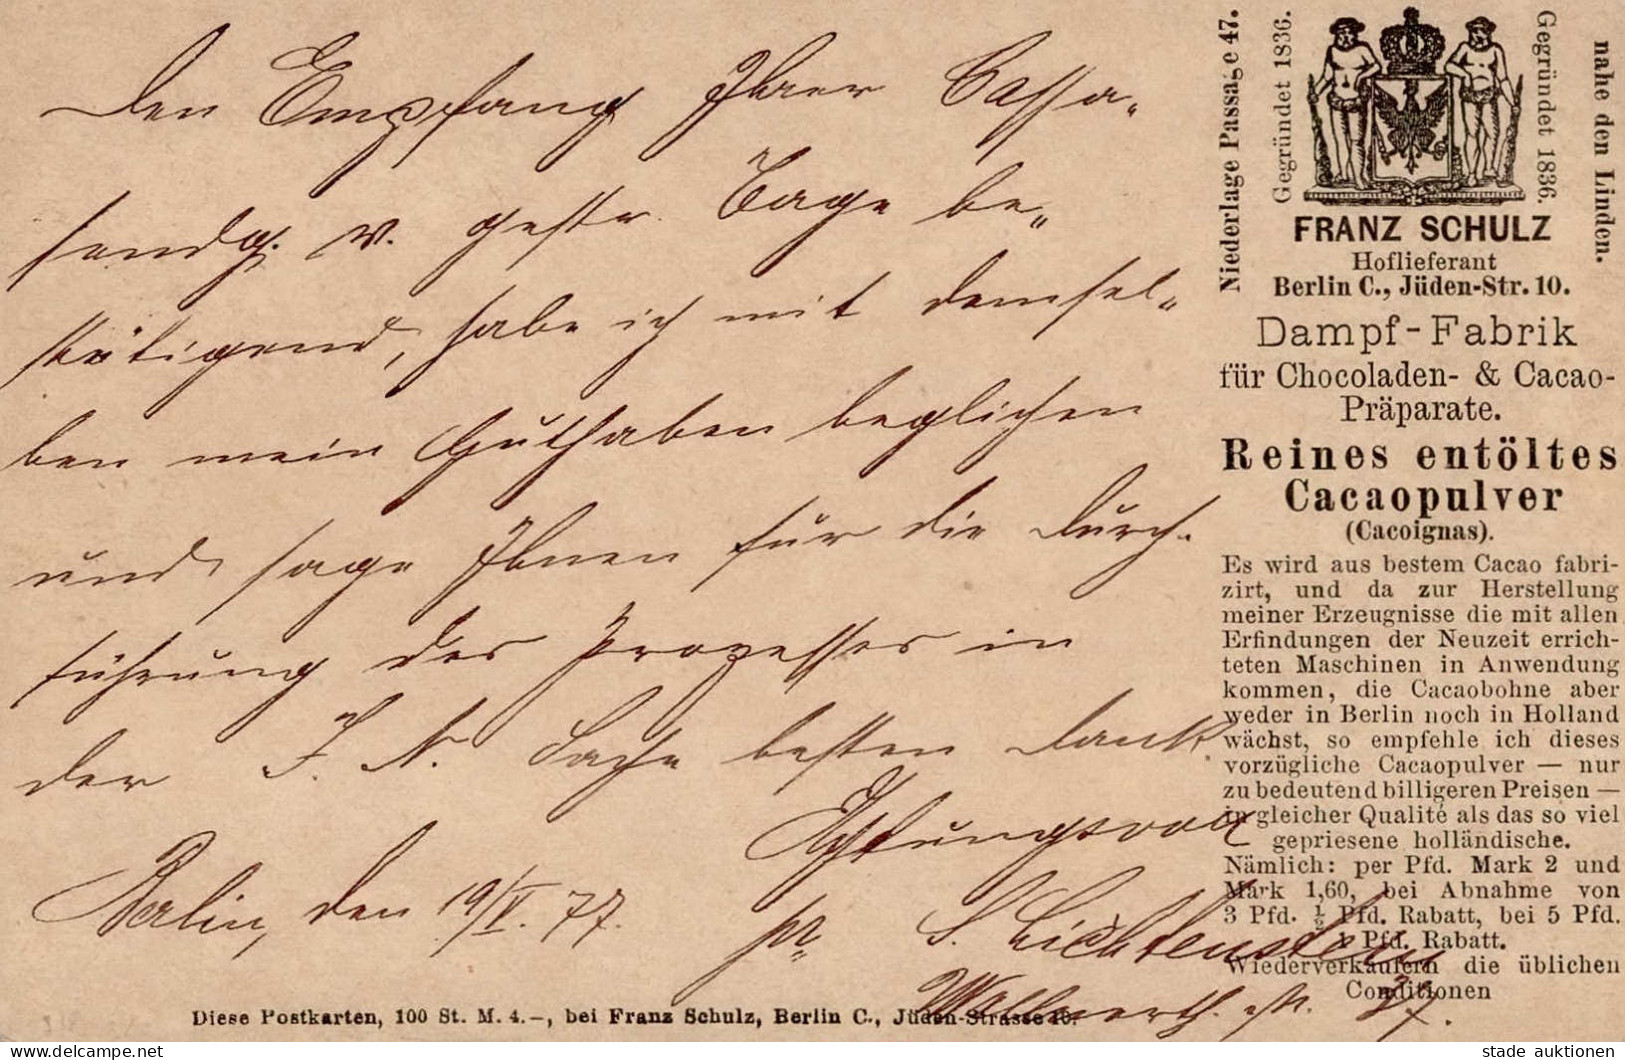 Den Empfang Ihrer Cassa-
sendg. v. gestr. Tage be-
stätigend, habe ich mit demsel-
ben mein Guthaben beglichen
und sage Ihnen für die Durch-
führung des Prozesses in
der F. N. Sache besten Dank
Achtungsvoll
Berlin, den 19/V. 77.
pr S. Lichtenstein
37.
Niederlage Passage 47.
Gegründet 1836.
Gegründet 1836.
nahe den Linden.
FRANZ SCHULZ
Hoflieferant
Berlin C., Jüden-Str. 10.
Dampf-Fabrik
für Chocoladen- & Cacao-
Präparate.
Reines entöltes
Cacaopulver
(Cacoignas).
Es wird aus bestem Cacao fabri-
zirt, und da zur Herstellung
meiner Erzeugnisse die mit allen
Erfindungen der Neuzeit errich-
teten Maschinen in Anwendung
kommen, die Cacaobohne aber
weder in Berlin noch in Holland
wächst, so empfehle ich dieses
vorzügliche Cacaopulver — nur
zu bedeutend billigeren Preisen —
in gleicher Qualité als das so viel
gepriesene holländische.
Nämlich: per Pfd. Mark 2 und
Mark 1,60, bei Abnahme von
3 Pfd. ½ Pfd. Rabatt, bei 5 Pfd.
1 Pfd. Rabatt.
Wiederverkäufern die üblichen
Conditionen
Diese Postkarten, 100 St. M. 4.—, bei Franz Schulz, Berlin C., Jüden-Strasse 10.
delcampe.net
stade auktionen